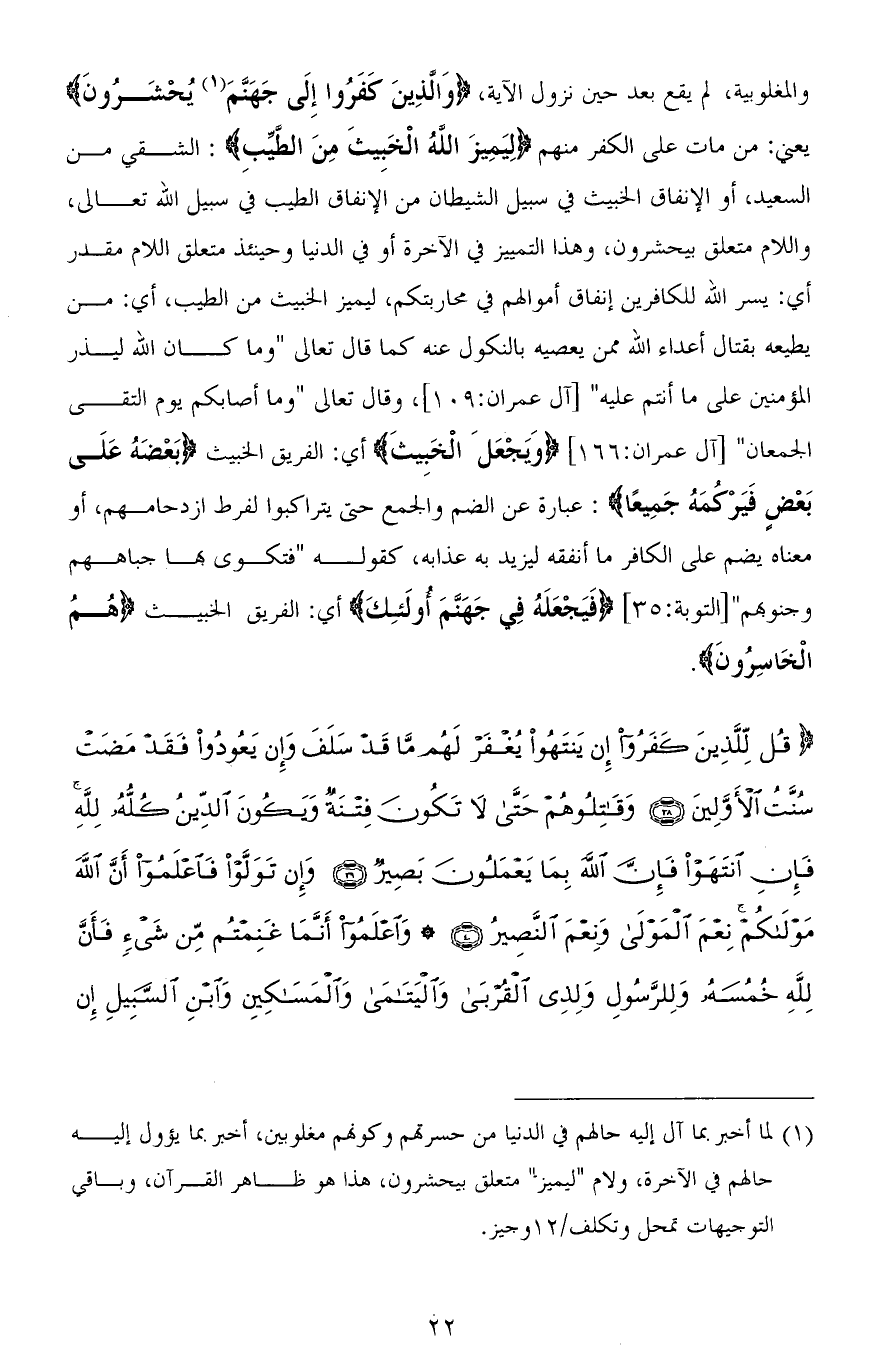 والمغلوبية، لم يقع بعد حين نزول الآية، ﴿وَالَّذِينَ كَفَرُوا إِلَى جَهَنَّمَ(١) يُحْشَـــرُونَ﴾
يعني: من مات على الكفر منهم ﴿لِيَمِيزَ اللَّهُ الْخَبِيثَ مِنَ الطَّيِّبِ﴾ : الشـــقي مـــن
السعيد، أو الإنفاق الخبيث في سبيل الشيطان من الإنفاق الطيب في سبيل الله تعـــالى،
واللام متعلق بيحشرون، وهذا التمييز في الآخرة أو في الدنيا وحينئذ متعلق اللام مقـــدر
أي: يسر الله للكافرين إنفاق أموالهم في محاربتكم، ليميز الخبيث من الطيب، أي: مـــن
يطيعه بقتال أعداء الله ممن يعصيه بالنكول عنه كما قال تعالى "وما كـــان الله ليـــذر
المؤمنين على ما أنتم عليه" [آل عمران:١٠٩]، وقال تعالى "وما أصابكم يوم التقـــى
الجمعان" [آل عمران:١٦٦] ﴿وَيَجْعَلَ الْخَبِيثَ﴾ أي: الفريق الخبيث ﴿بَعْضَهُ عَلَـــى
بَعْضٍ فَيَرْكُمَهُ جَمِيعًا﴾ : عبارة عن الضم والجمع حتى يتراكبوا لفرط ازدحامـــهم، أو
معناه يضم على الكافر ما أنفقه ليزيد به عذابه، كقولـــه "فتكـــوى بهـــا جباهـــهم
وجنوبهم"[التوبة:٣٥] ﴿فَيَجْعَلَهُ فِي جَهَنَّمَ أُولَئِكَ﴾ أي: الفريق الخبيـــث ﴿هُـــمُ
الْخَاسِرُونَ﴾.
﴿ قُل لِّلَّذِينَ كَفَرُوٓا۟ إِن يَنتَهُوا۟ يُغْفَرْ لَهُم مَّا قَدْ سَلَفَ وَإِن يَعُودُوا۟ فَقَدْ مَضَتْ
سُنَّتُ ٱلْأَوَّلِينَ ۝٣٨ وَقَـٰتِلُوهُمْ حَتَّىٰ لَا تَكُونَ فِتْنَةٌ وَيَكُونَ ٱلدِّينُ كُلُّهُۥ لِلَّهِ ۚ
فَإِنِ ٱنتَهَوْا۟ فَإِنَّ ٱللَّهَ بِمَا يَعْمَلُونَ بَصِيرٌ ۝٣٩ وَإِن تَوَلَّوْا۟ فَٱعْلَمُوٓا۟ أَنَّ ٱللَّهَ
مَوْلَىٰكُمْ ۚ نِعْمَ ٱلْمَوْلَىٰ وَنِعْمَ ٱلنَّصِيرُ ۝٤٠ * وَٱعْلَمُوٓا۟ أَنَّمَا غَنِمْتُم مِّن شَىْءٍ فَأَنَّ
لِلَّهِ خُمُسَهُۥ وَلِلرَّسُولِ وَلِذِى ٱلْقُرْبَىٰ وَٱلْيَتَـٰمَىٰ وَٱلْمَسَـٰكِينِ وَٱبْنِ ٱلسَّبِيلِ إِن
(١) لما أخبر بما آل إليه حالهم في الدنيا من حسرتهم وكونهم مغلوبين، أخبر بما يؤول إليـــه
حالهم في الآخرة، ولام "ليميز" متعلق بيحشرون، هذا هو ظـــاهر القـــرآن، وبـــاقي
التوجيهات تمحل وتكلف/١٢وجيز.
٢٢